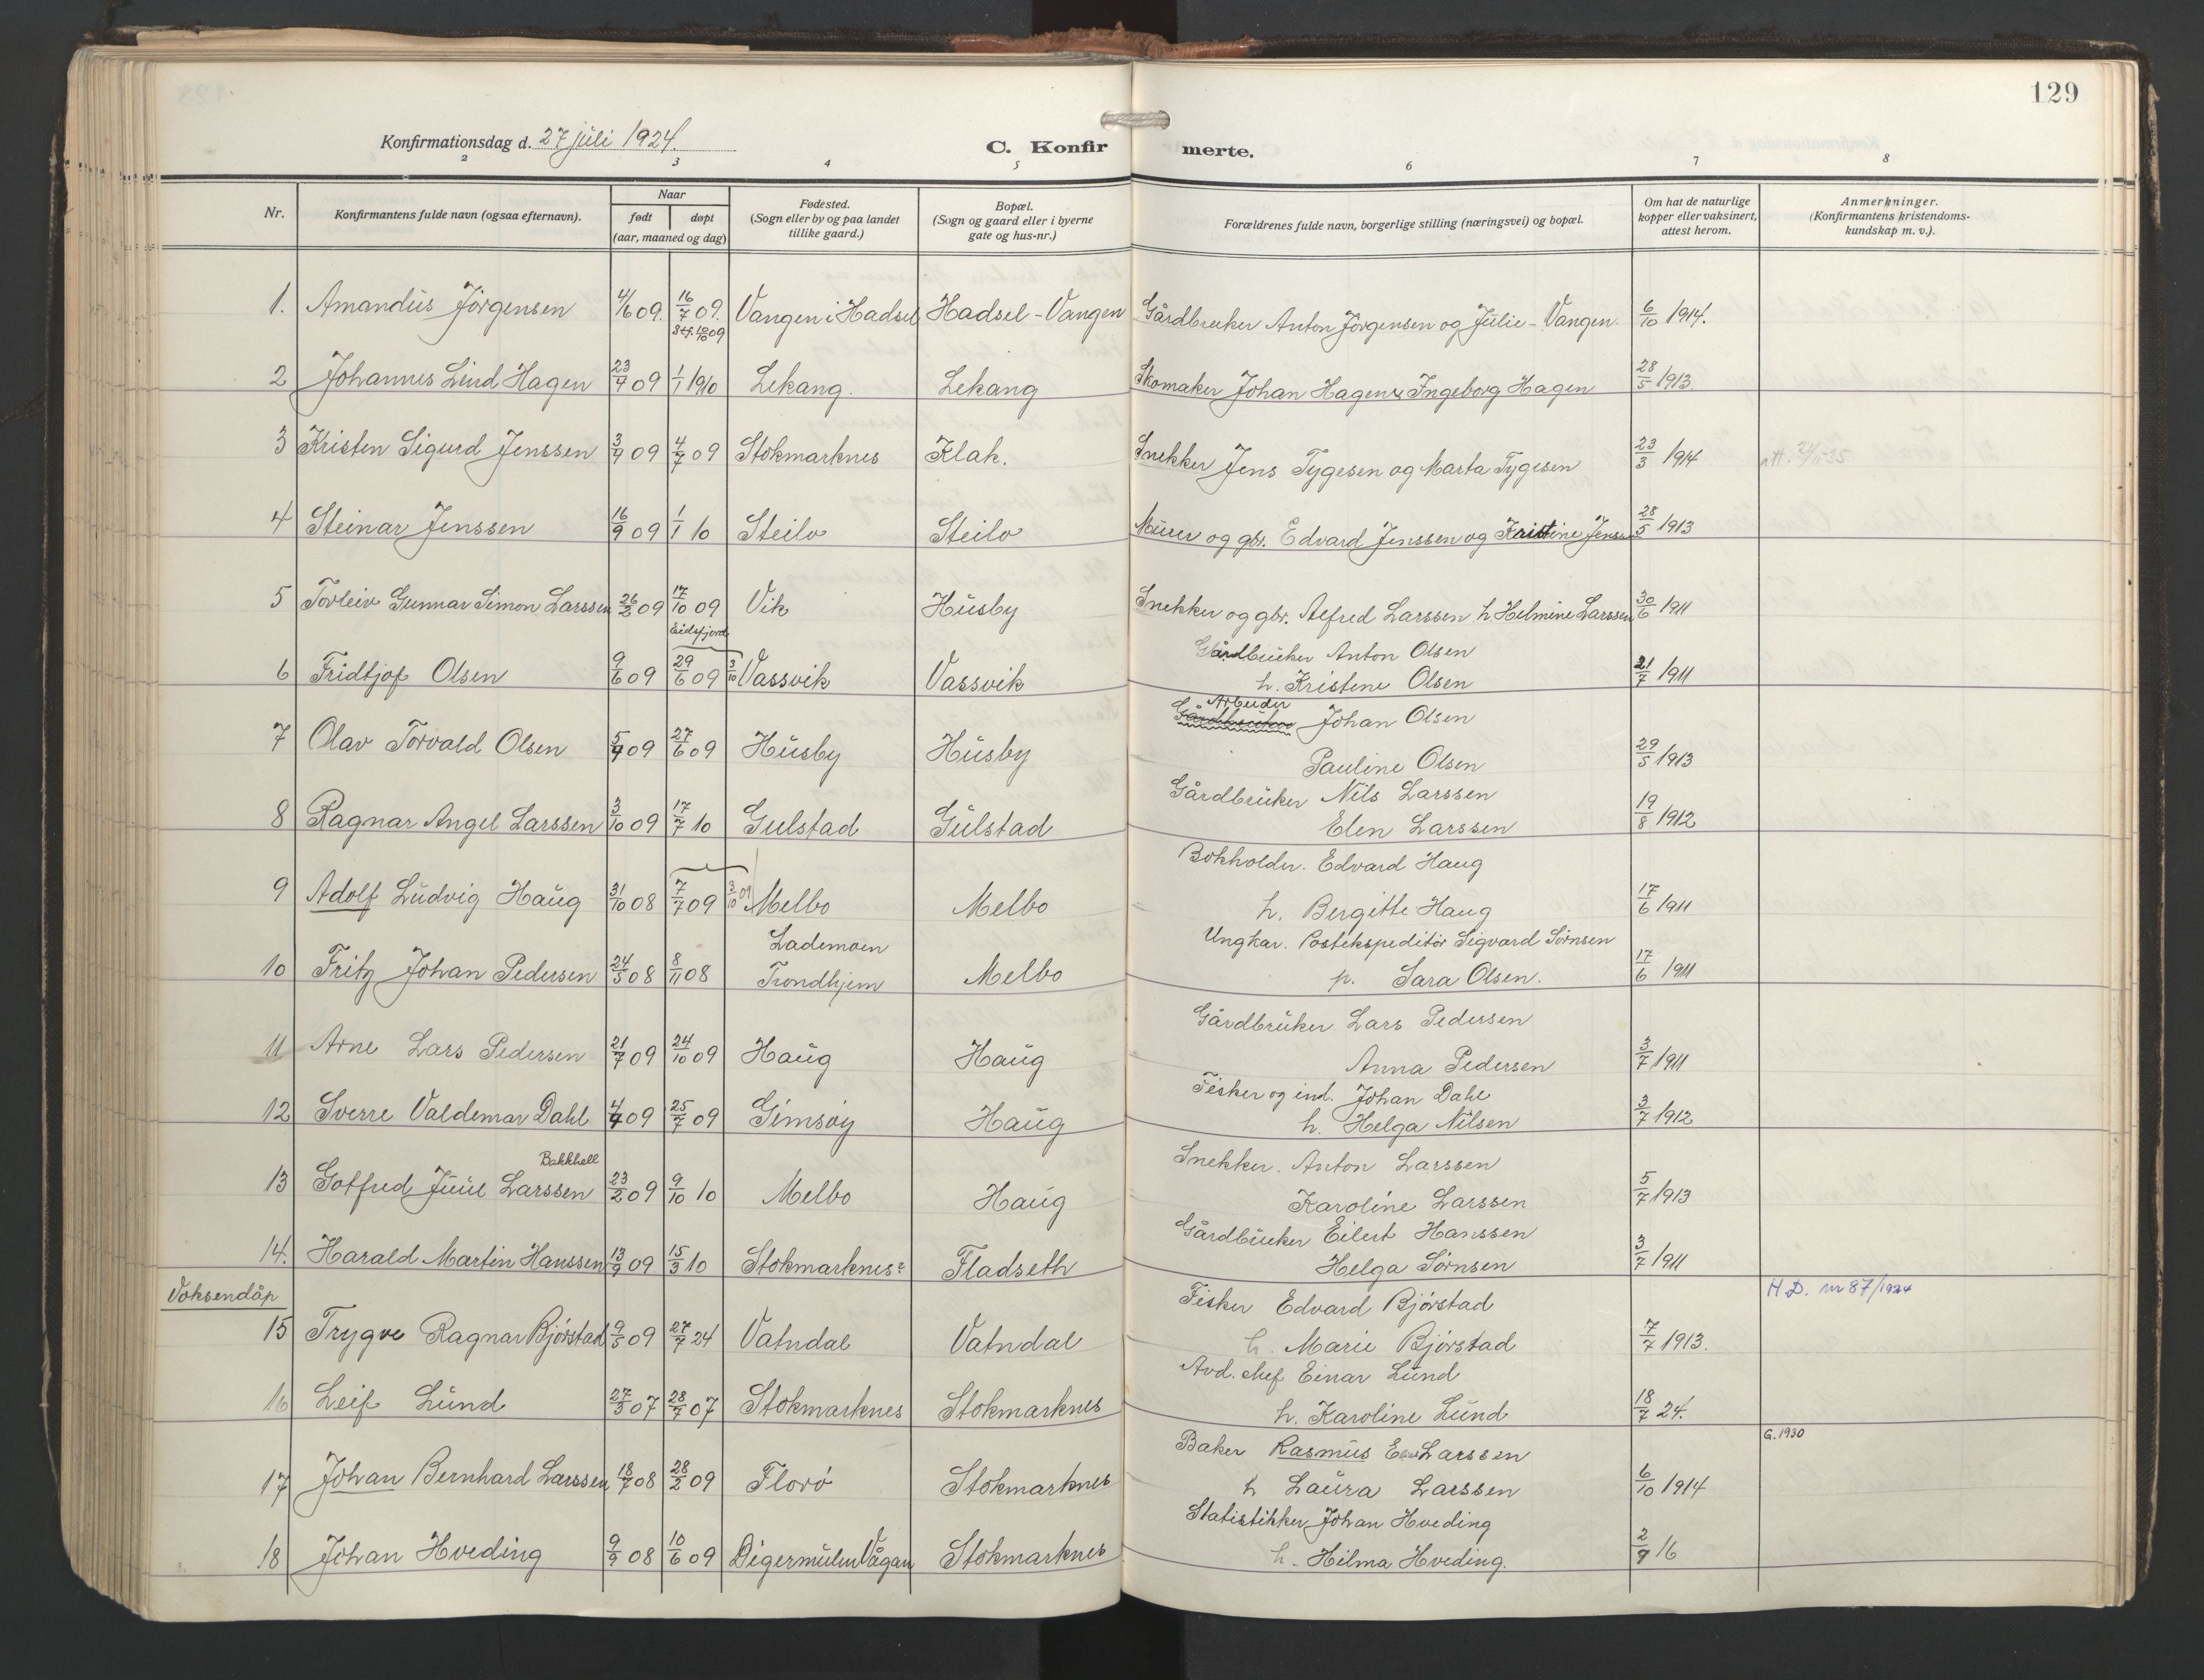 129
Konfirmationsdag d. 27 juli 1924.
C. Konfir merte.
2 3 4 5 6 7 8
Nr.
Konfirmantens fulde navn (ogsaa efternavn).
Naar
født døpt
(aar, maaned og dag)
Fødested.
(Sogn eller by og paa landet
tillike gaard.)
Bopæl.
(Sogn og gaard eller i byerne
gate og hus-nr.)
Forældrenes fulde navn, borgerlige stilling (næringsvei) og bopæl.
Om hat de naturlige
kopper eller vaksinert,
attest herom.
Anmerkninger.
(Konfirmantens kristendoms-
kundskap m. v.).
1. Amandus Jörgensen 4/6 09. 16/7 09. Vangen i Hadsel Hadsel - Vangen Gårdbruker Anton Jörgensen og Julie - Vangen. 6/10 1914.
stf. 10/10 09
2 Johannes Lind Hagen 23/4 09 1/1 1910 Lekang. Lekang Skomaker Johan Hagen & Ingeborg Hagen 28/5 1913.
3 Kristen Sigurd Jenssen 3/4 09 4/7 09 Stokmarknes Klak. Snekker Jens Tygesen og Marta Tygesen 23/3 1914
4 Steinar Jenssen 16/9 09 1/1 10 Steilo Steilo Murer og gbr. Edvard Jenssen og Kristine Jenssen 28/5 1913
5 Torleiv Gunnar Simon Larssen 26/2 09 17/10 09 Vik Husby Snekker og gbr. Alfred Larssen h. Helmine Larssen 30/6 1911
Eidsfjord
Gårdbruker Anton Olsen
6 Fridtjof Olsen 9/6 09 29/6 09 3/10 Vassvik Vassvik h. Kristene Olsen 21/7 1911
Arbeider
Gårdbruker Johan Olsen
7 Olav Torvald Olsen 5/4 09 27/6 09 Husby Husby Pauline Olsen 29/5 1913
Gårdbruker Nils Larssen
8 Ragnar Angel Larssen 3/10 09 17/7 10 Gulstad Gulstad Elen Larssen 19/8 1912
Bokholder. Edvard Haug
9 Adolf Ludvig Haug 31/10 08 7/7 09 3/10 09 Melbo Melbo h. Bergitte Haug 17/6 1911
Lademoen Ungkar. Postekspeditör Sigvard Sörnsen
10 Fritz Johan Pedersen 24/5 08 8/11 08 Trondhjem Melbo p. Sara Olsen. 17/6 1911
Gårdbruker Lars Pedersen
11 Arne Lars Pedersen 21/7 09 24/10 09 Haug Haug Anna Pedersen 3/7 1911
Fisker og ind. Johan Dahl
12 Sverre Valdemar Dahl 4/4 09 25/7 09 Gimsöy Haug h. Helga Nilsen 3/7 1912
Bakkhell Snekker. Anton Larssen
13 Gotfred Juul Larssen 23/2 09 9/10 10 Melbo Haug Karoline Larssen 5/7 1913
Gårdbruker Eilert Hanssen
14. Harald Martin Hanssen 13/9 09 15/3 10 Stokmarknes? Fladseth Helga Sörnsen 3/7 1911
Voksendåp Fisker Edvard Bjórstad H. D. nr 87/1924
15 Trygve Ragnar Bjórstad 9/5 09 27/7 24 Vatndal Vatndal h. Marie Bjórstad 7/7 1913.
Avd. chef Einar Lund
16 Leif Lund 27/3 07 28/7 07 Stokmarknes Stokmarknes h. Karoline Lund 18/7 24.
Baker Rasmus Larssen G. 1930
17 Johan Bernhard Larssen 18/7 08 28/2 09 Florö Stokmarknes h Laura Larssen 6/10 1914
Statistikker Johan Hveding
18 Johan Hveding 9/9 08 10/6 09 Digermulen Vågan Stokmarknes h. Hilma Hveding. 2/9 16